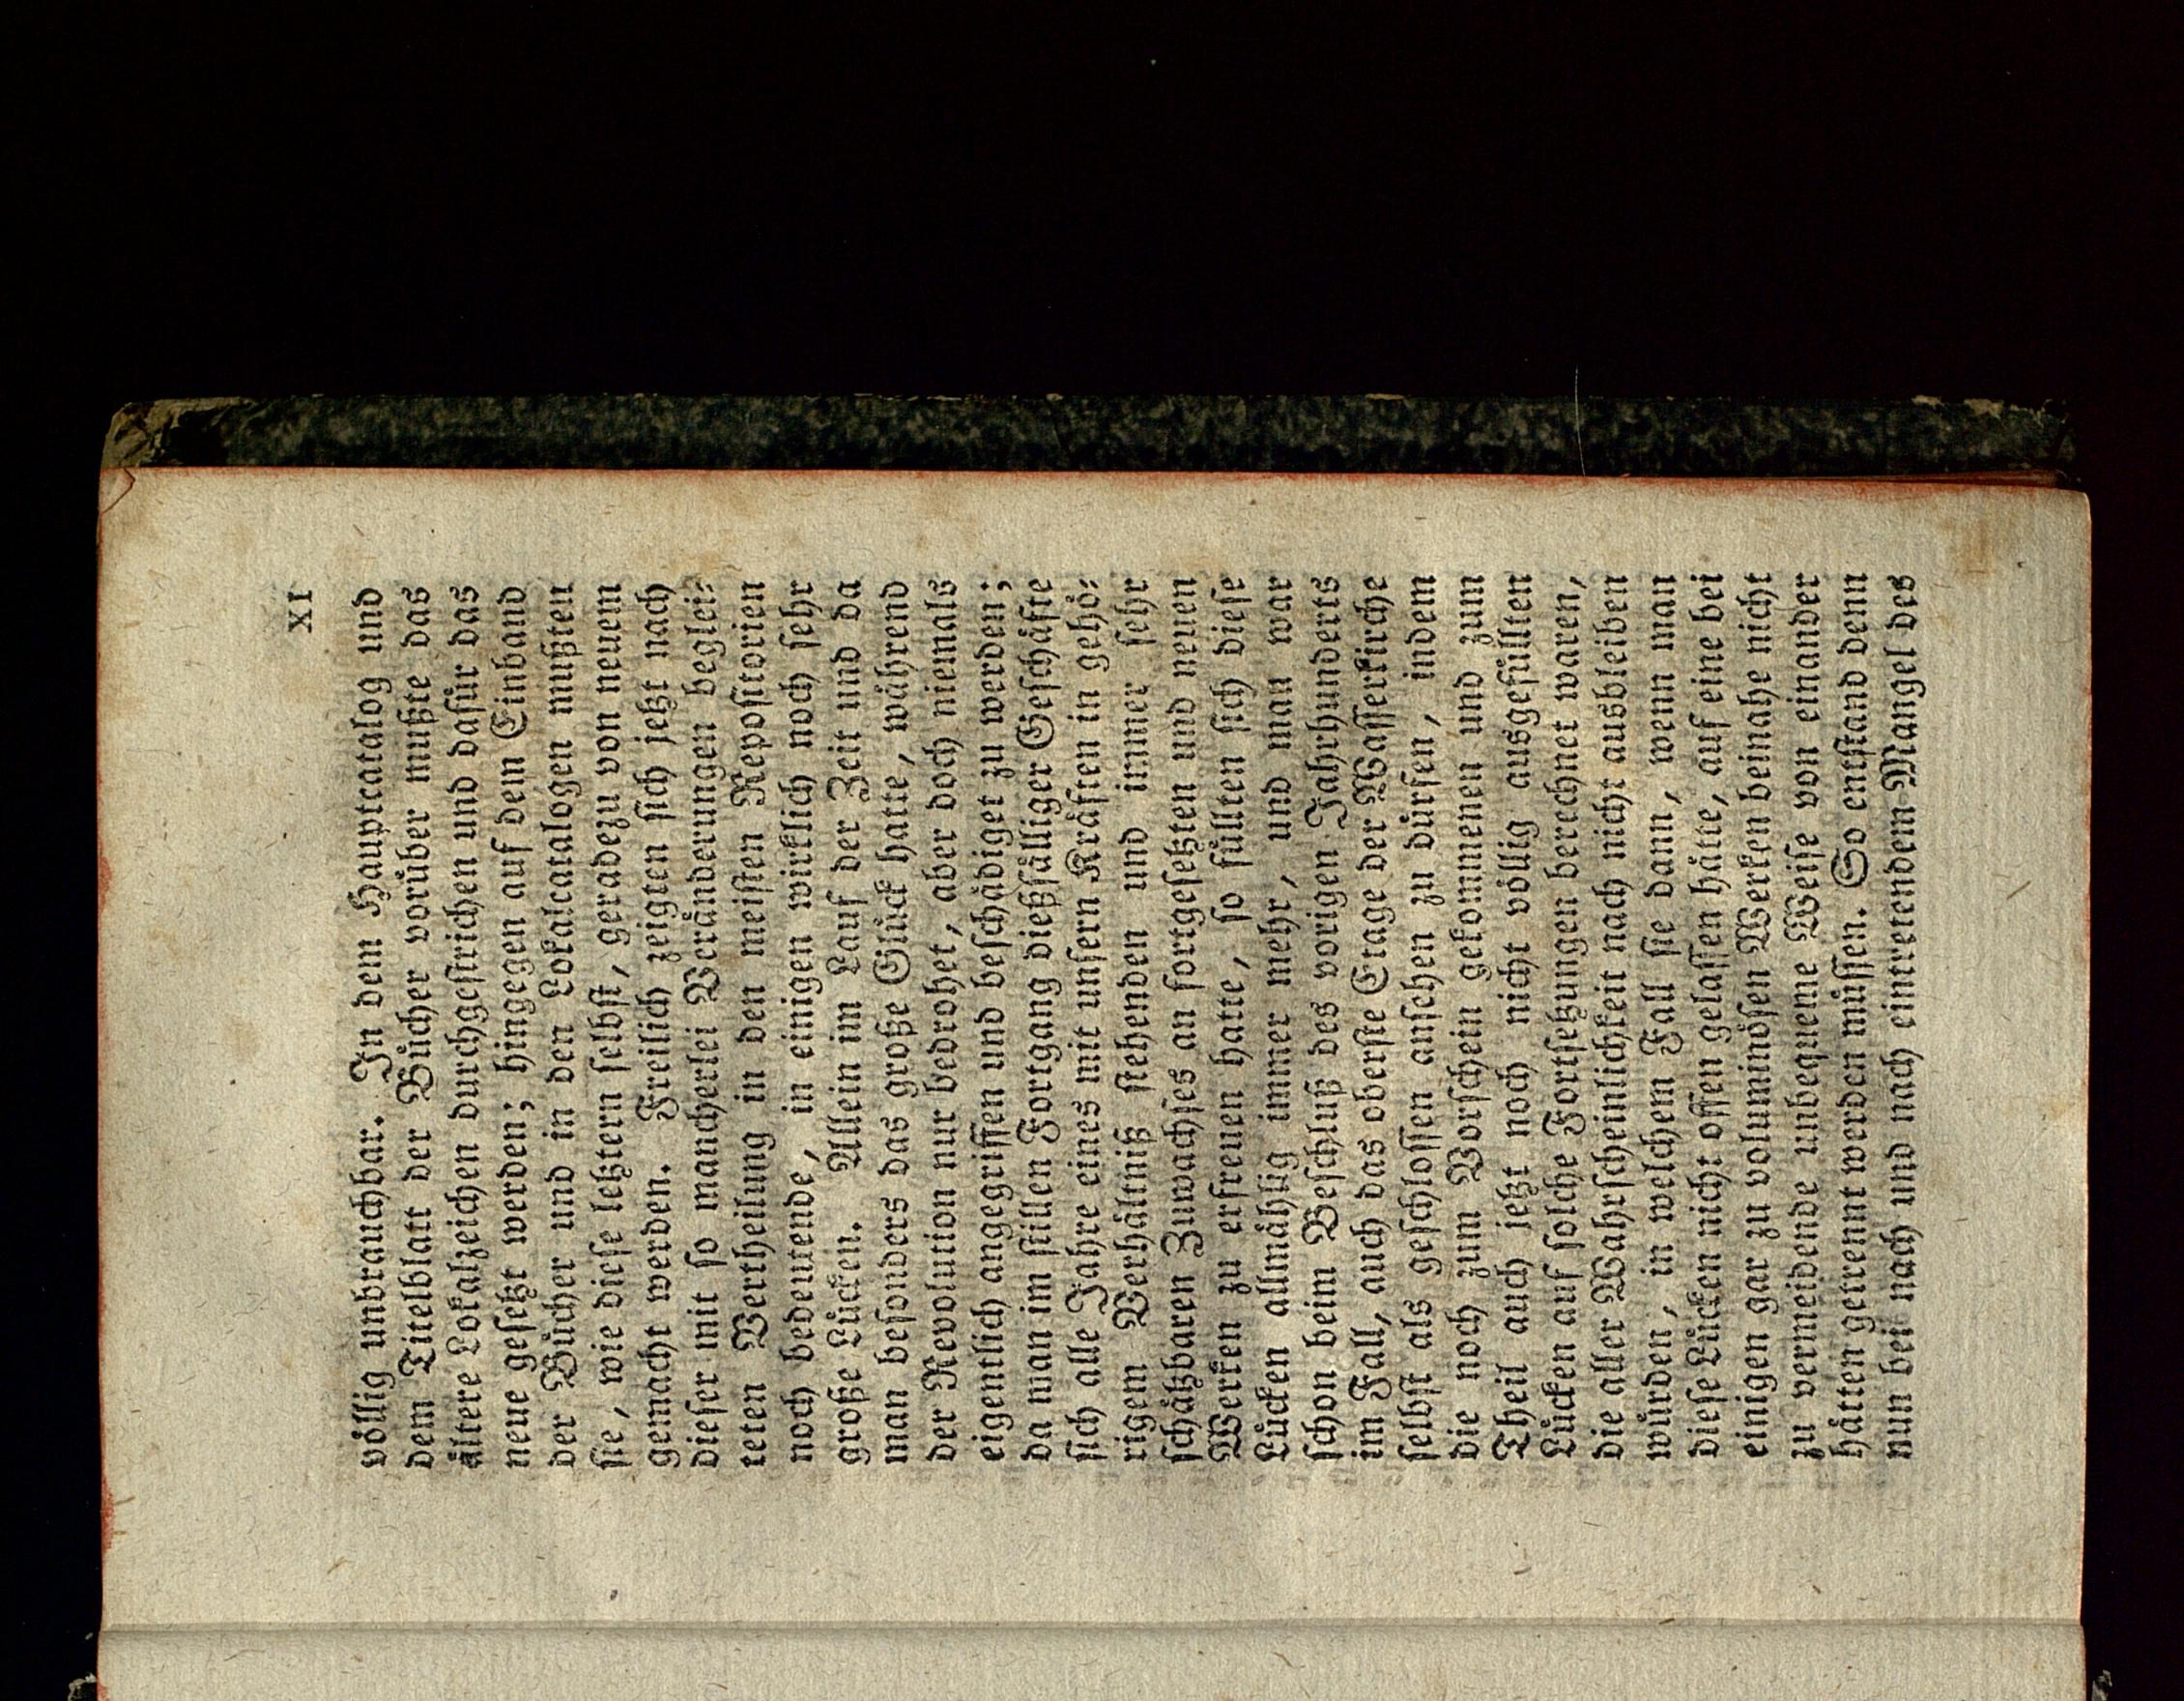 XI
völlig unbrauchbar. In dem Hauptcatalog und
dem Titelblatt der Bücher vorüber mußte das
ältere Lokalzeichen durchgestrichen und dafür das
neue gesetzt werden; hingegen auf dem Einband
der Bücher und in den Lokalcatalogen mußten
sie, wie diese letztern selbst, geradezu von neuem
gemacht werden. Freilich zeigten sich jetzt nach
dieser mit so mancherlei Veränderungen beglei-
teten Vertheilung in den meisten Repositorien
noch bedeutende, in einigen wirklich noch sehr
große Lücken. Allein im Lauf der Zeit und da
man besonders das große Glück hatte, während
der Revolution nur bedrohet, aber doch niemals
eigentlich angegriffen und beschädiget zu werden;
da man im stillen Fortgang dießfälliger Geschäfte
sich alle Jahre eines mit unsern Kräften in gehö-
rigem Verhältniß stehenden und immer sehr
schätzbaren Zuwachses an fortgesetzten und neuen
Werken zu erfreuen hatte, so füllten sich diese
Lücken allmählig immer mehr, und man war
schon beim Beschluß des vorigen Jahrhunderts
im Fall, auch das oberste Etage der Wasserkirche
selbst als geschlossen ansehen zu dürfen, indem
die noch zum Vorschein gekommenen und zum
Theil auch jetzt noch nicht völlig ausgefüllten
Lücken auf solche Fortsetzungen berechnet waren,
die aller Wahrscheinlichkeit nach nicht ausbleiben
würden, in welchem Fall sie dann, wenn man
diese Lücken nicht offen gelassen hätte, auf eine bei
einigen gar zu voluminösen Werken beinahe nicht
zu vermeidende unbequeme Weise von einander
hätten getrennt werden müssen. So entstand denn
nun bei nach und nach eintretendem Mangel des